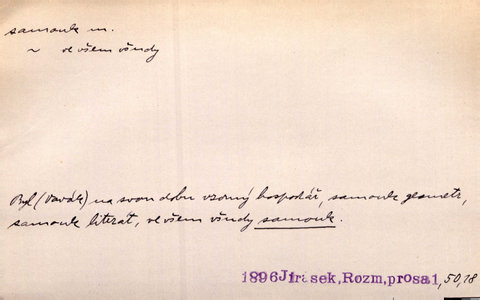 samouk m.
~ ve všem všudy
Byl (Vavák) na svou dobu vzorný hospodář, samouk geometr,
samouk literát, ve všem všudy samouk.
1896 Jirásek, Rozm, prosa 1, 50, 18